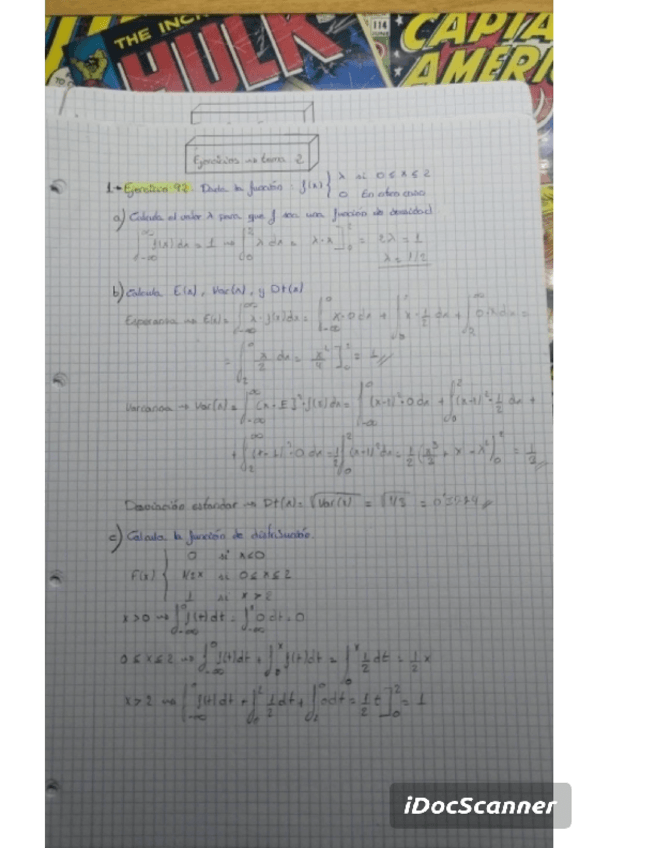 THE INC
HULK
114
CAPTA
AMERI
Ejercicios tema 2
1- Ejercicio 92. Dada la función: f(x) { λ si 0 ≤ x ≤ 2
0 En otro caso
a) Calcula el valor λ para que f sea una función de densidad
∫_{-∞}^{∞} f(x) dx = 1 → ∫_0^2 λ dx = λ·x ]_0^2 = 2λ = 1
λ = 1/2
b) Calcula E(x), Var(x), y Dt(x)
Esperanza → E(x) = ∫_{-∞}^{∞} x·f(x) dx = ∫_{-∞}^{0} x·0 dx + ∫_0^2 x·1/2 dx + ∫_2^{∞} 0·x dx =
x/2 dx = x²/4 ]_0^2 = 1
Varianza → Var(x) = ∫_{-∞}^{∞} (x-E)²·f(x) dx = ∫_{-∞}^{0} (x-1)²·0 dx + ∫_0^2 (x-1)²·1/2 dx +
+ ∫_2^{∞} (x-1)²·0 dx = 1/2 ∫_0^2 (x-1)² dx = 1/2 (x³/3 + x - x²)_0^2 = 1/3
Desviación estándar → Dt(x) = √Var(x) = √1/3 =
c) Calcula la función de
F(x) { 0 si x<0
1/2x si 0 ≤ x ≤ 2
1 si x > 2
x>0 → ∫_{-∞}^{x} f(t) dt = ∫_{-∞}^{x} 0 dt = 0
0 ≤ x ≤ 2 → ∫_{-∞}^{0} f(t) dt + ∫_0^x f(t) dt = ∫_0^x 1/2 dt = 1/2 x
x>2 → ∫_{-∞}^{0} f(t) dt + ∫_0^2 1/2 dt + ∫ 0 dt = 1/2 t ]_0^2 = 1
iDocScanner